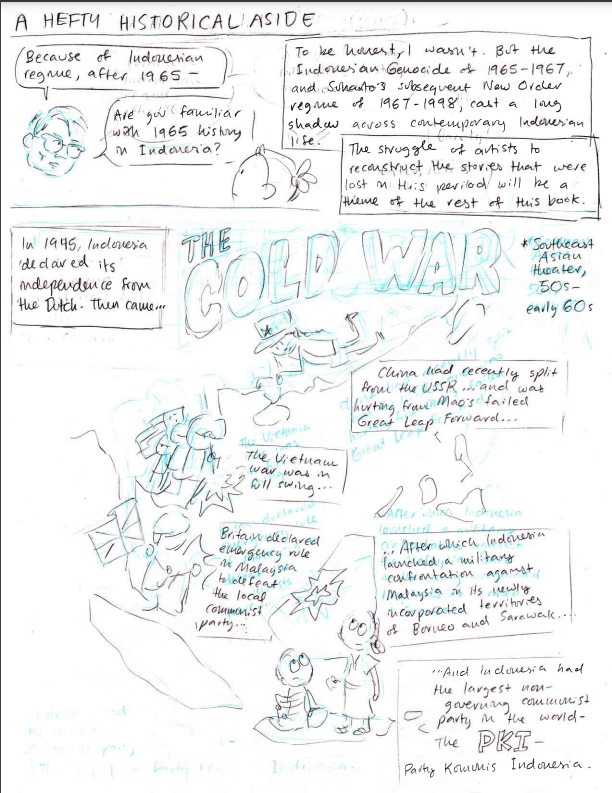 A HEFTY HISTORICAL ASIDE
Because of Indonesian
regime, after 1965 –
Are you familiar
with 1965 history
in Indonesia?
To be honest, I wasn't. But the
Indonesian Genocide of 1965-1967,
and Suharto's subsequent New Order
regime of 1967-1998, cast a long
shadow across contemporary Indonesian
life.
The struggle of artists to
reconstruct the stories that were
lost in this period will be a
theme of the rest of this book.
In 1945, Indonesia
declared its
independence from
the Dutch. Then came...
THE
COLD WAR
* Southeast
Asian
theater,
50s–
early 60s
China had recently split
from the USSR... and was
hurting from Mao's failed
Great Leap Forward...
The Vietnam
war was in
full swing...
Britain declared
emergency rule
in Malaysia
to defeat
the local
communist
party...
... After which Indonesia
launched a military
confrontation against
Malaysia in its newly
incorporated territories
of Borneo and Sarawak...
...And Indonesia had
the largest non-
governing communist
party in the world–
The PKI –
Party Kommnis Indonesia.